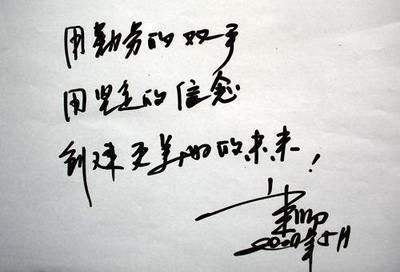 用勤劳的双手
用坚定的信念
创建更美好的未来!
2007年5月